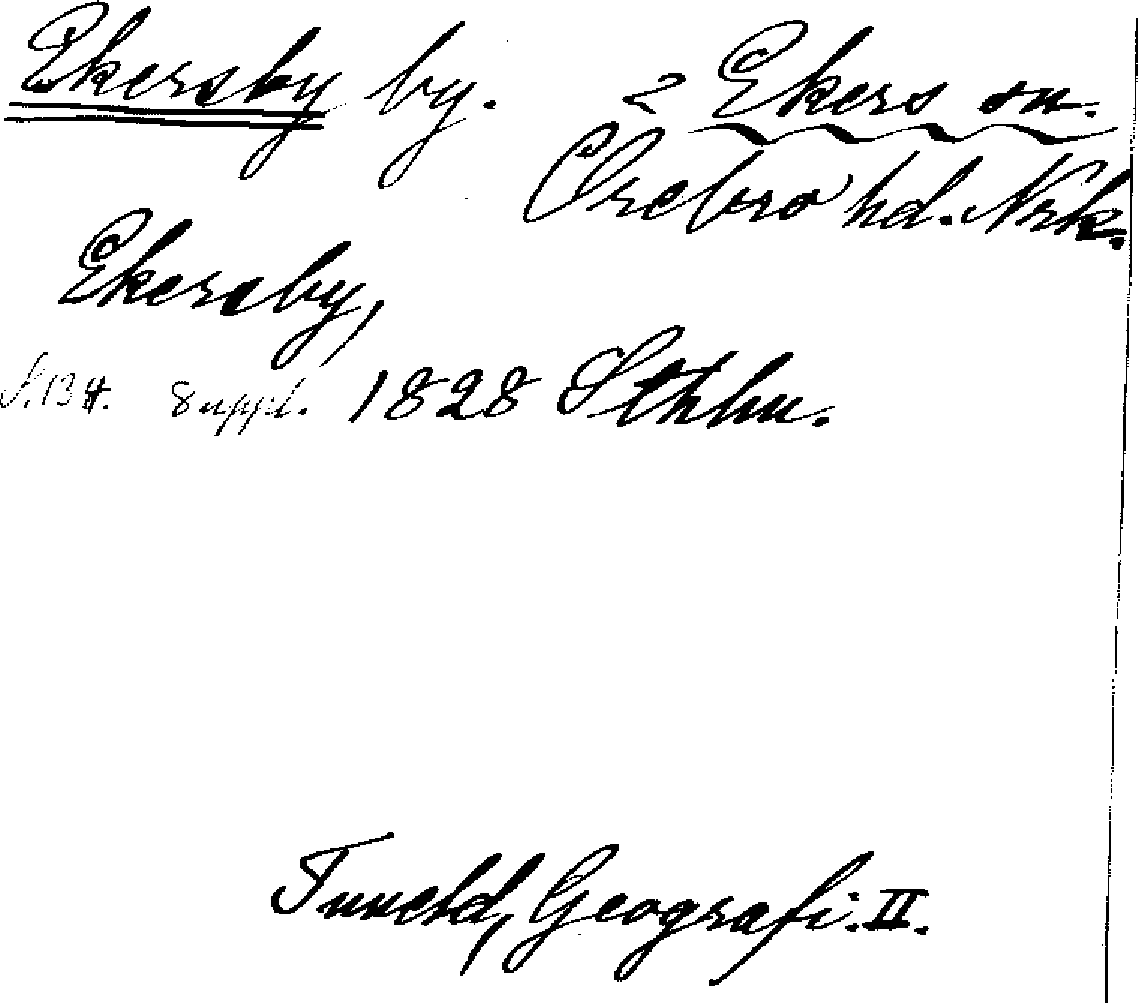 Ekersby by. 2 Ekers sn.
Örebro hd. Nrk.
Ekersby,
S. 134. 8 uppl. 1828 Sthlm.
Tuneld, Geografi. II.